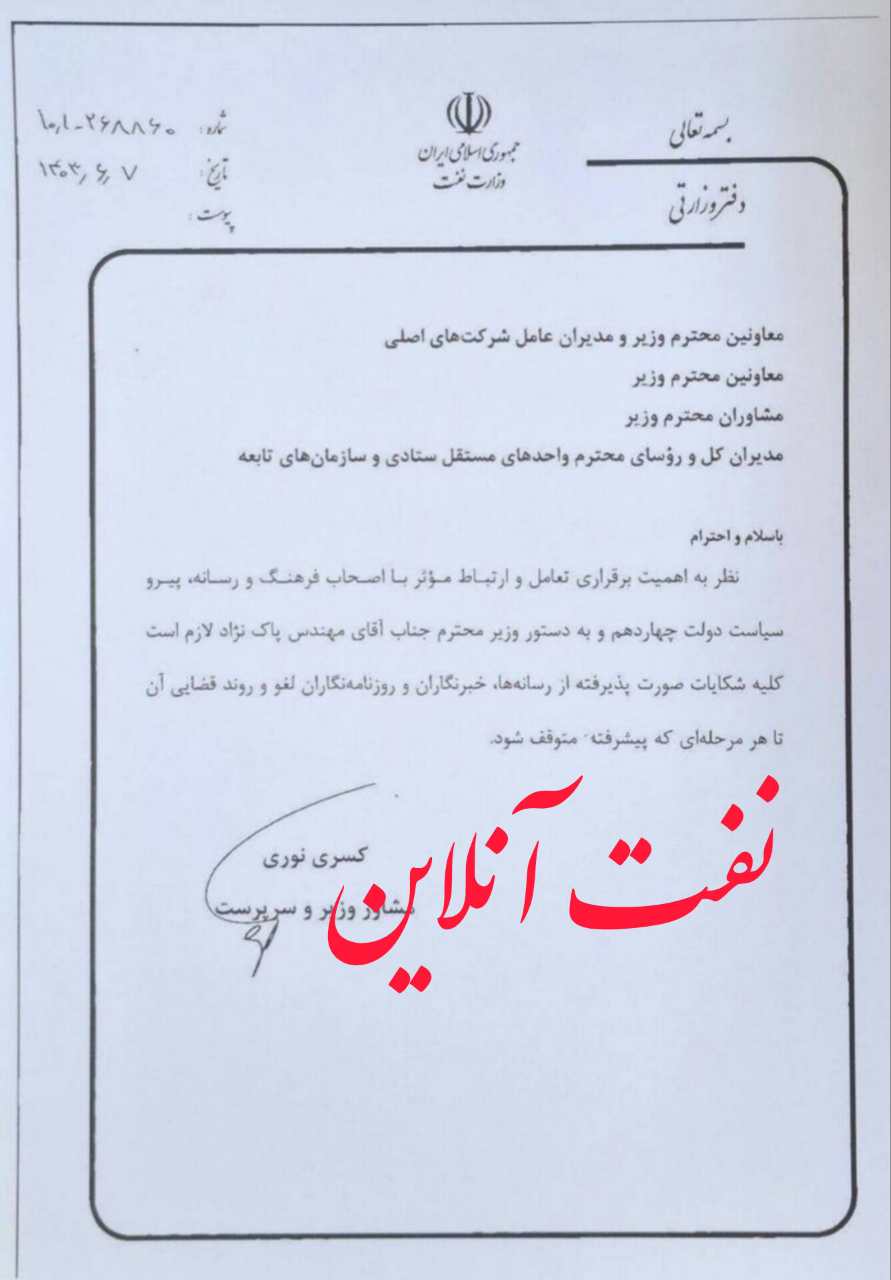 بسمه تعالی
دفتر وزارتی
جمهوری اسلامی ایران
وزارت نفت
شماره :
تاریخ : ۱۴۰۳٫۶٫۷
پیوست :
معاونین محترم وزیر و مدیران عامل شرکت‌های اصلی
معاونین محترم وزیر
مشاوران محترم وزیر
مدیران کل و رؤسای محترم واحدهای مستقل ستادی و سازمان‌های تابعه
باسلام و احترام
نظر به اهمیت برقراری تعامل و ارتباط مؤثر با اصحاب فرهنگ و رسانه، پیرو
سیاست دولت چهاردهم و به دستور وزیر محترم جناب آقای مهندس پاک نژاد لازم است
کلیه شکایات صورت پذیرفته از رسانه‌ها، خبرنگاران و روزنامه‌نگاران لغو و روند قضایی آن
تا هر مرحله‌ای که پیشرفته متوقف شود.
کسری نوری
مشاور وزیر و سرپرست
نفت آنلاین